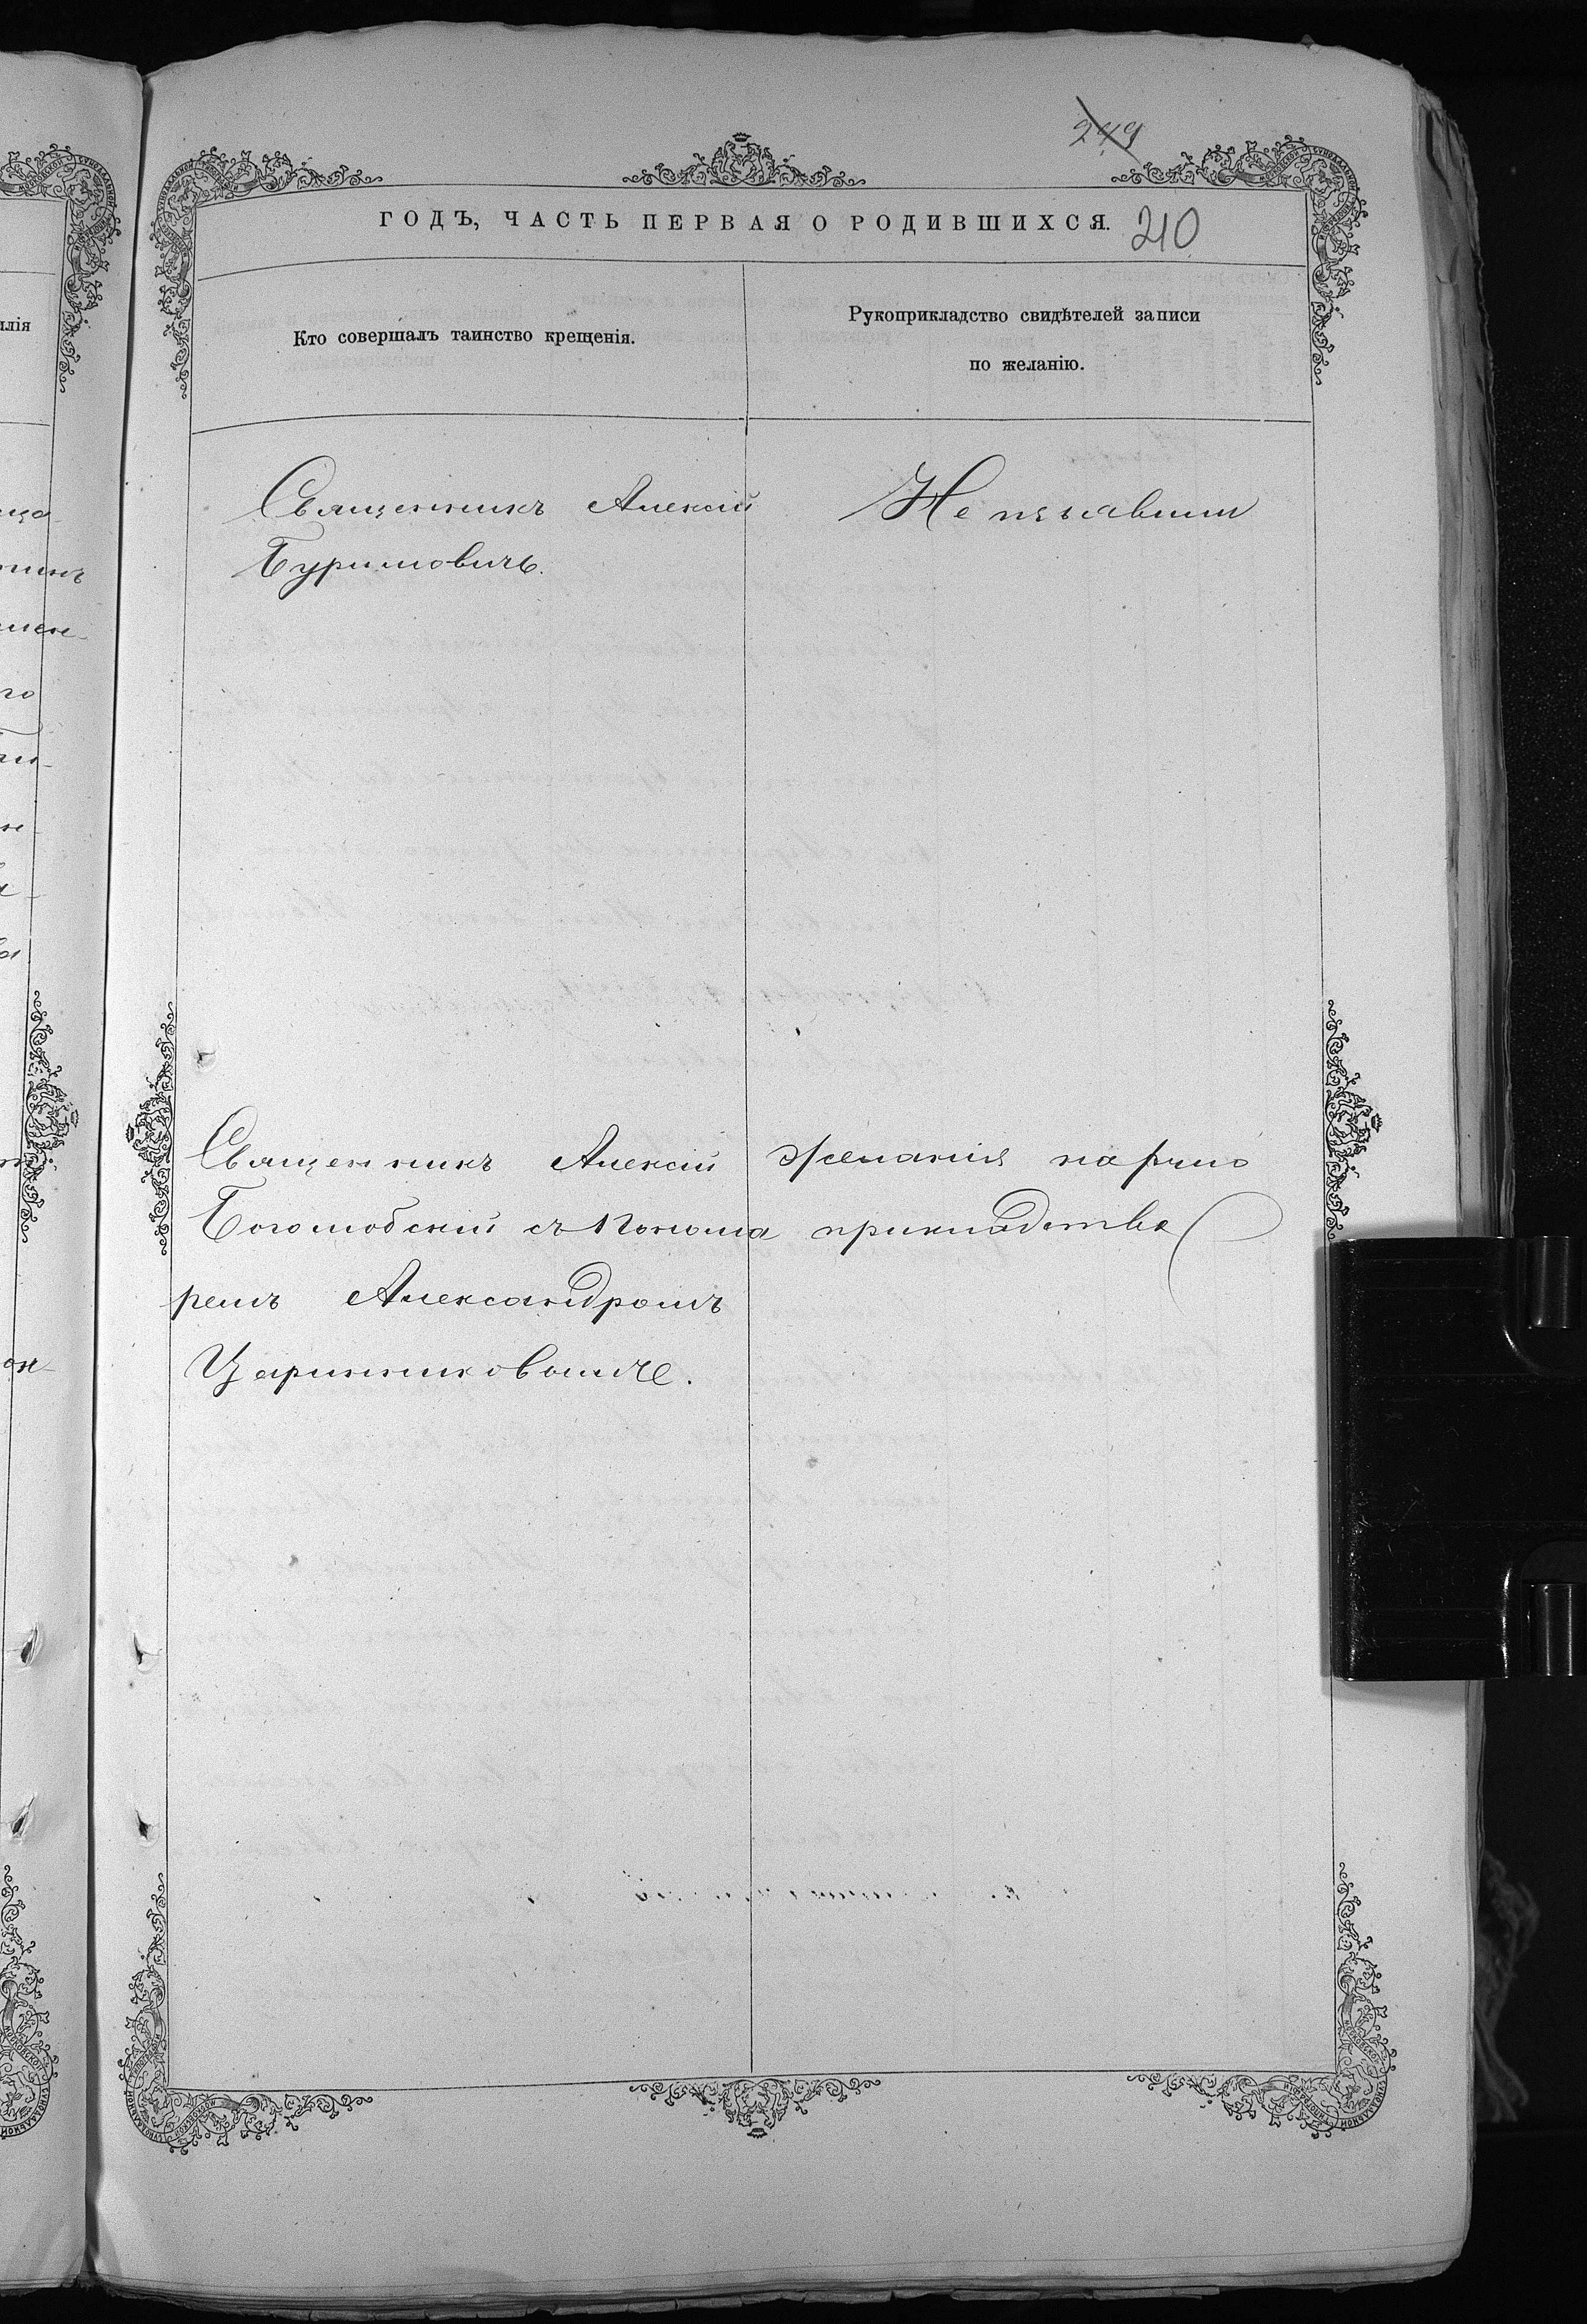 249
ГОДЪ, ЧАСТЬ ПЕРВАЯ О РОДИВШИХСЯ. 210
илія
Кто совершалъ таинство крещенія.
Рукоприкладство свидѣтелей записи
по желанію.
Священникъ Алексій
Буримовичъ.
Не пжелавшии
Священникъ Алексій
Боголюбскій съ Понома
ремъ Александромъ
Царинниковымъ.
Желанія на рука
прикладства